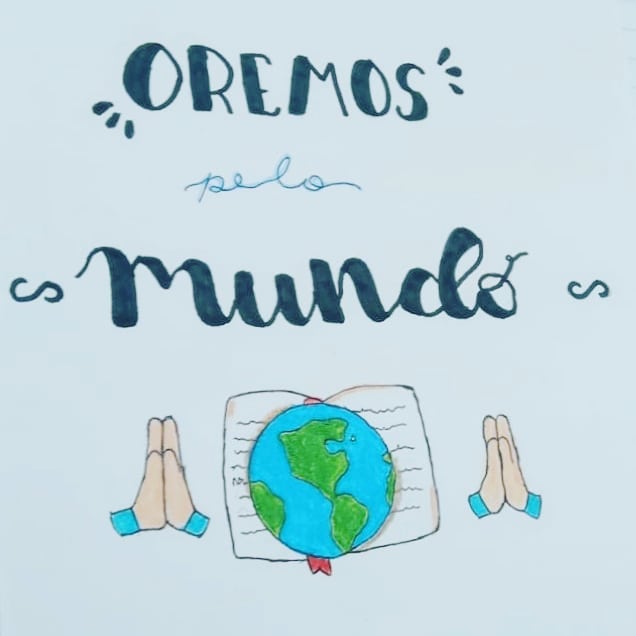 OREMOS
pelo
mundo